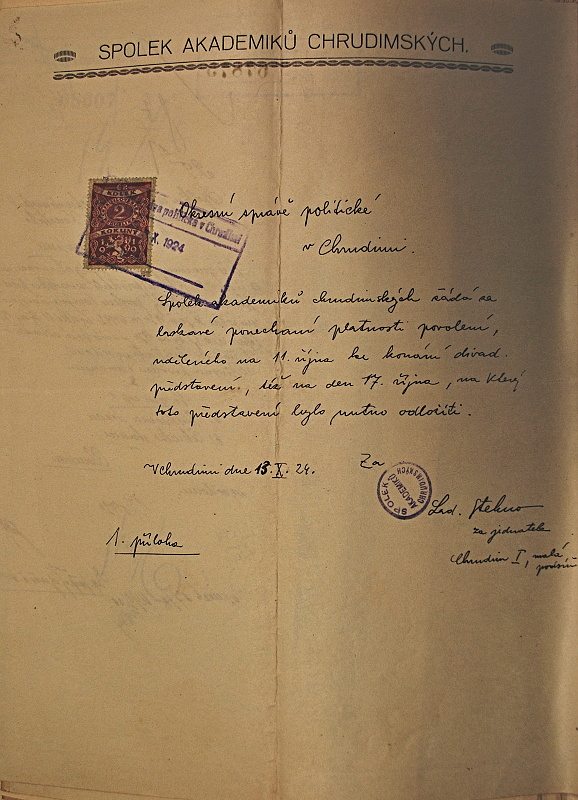 SPOLEK AKADEMIKŮ CHRUDIMSKÝCH.
KOLEK
2
KORUNY
Okresní správě politické
v Chrudimi.
va politická v Chrudimi
X. 1924
Spolek akademiků chrudimských žádá za
laskavé ponechání platnosti povolení,
uděleného na 11. října ke konání divad.
představení, též na den 17. října, na který
toto představení bylo nutno odložiti.
V Chrudimi dne 13. X. 24.
Za
SPOLEK AKADEMIKŮ CHRUDIMSKÝCH
Lad. Stehno
za jednatele
Chrudim I, malá
1. příloha